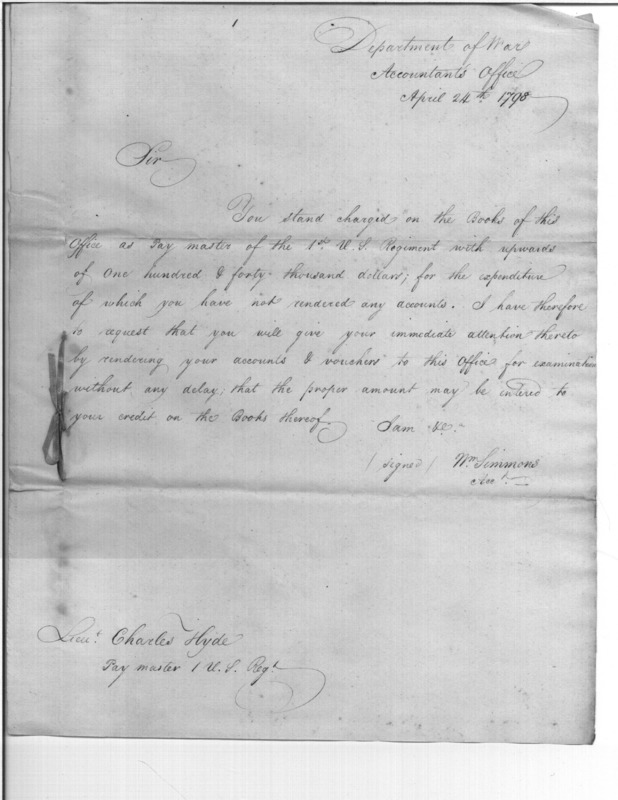 Department of War
Accountant's Office
April 24th. 1798
Sir
You stand charged on the Books of this
Office as Pay master of the 1st U.S. Regiment with upwards
of one hundred & forty thousand dollars; for the expenditure
of which you have not rendered any accounts. I have therefore
to request that you will give your immediate attention thereto
by rendering your accounts & vouchers to this Office for examination
without any delay, that the proper amount may be entered to
your credit on the Books thereof.
I am &c.
(signed) Wm. Simmons
Acct.
Lieut. Charles Hyde
Pay master 1 U.S. Regt.